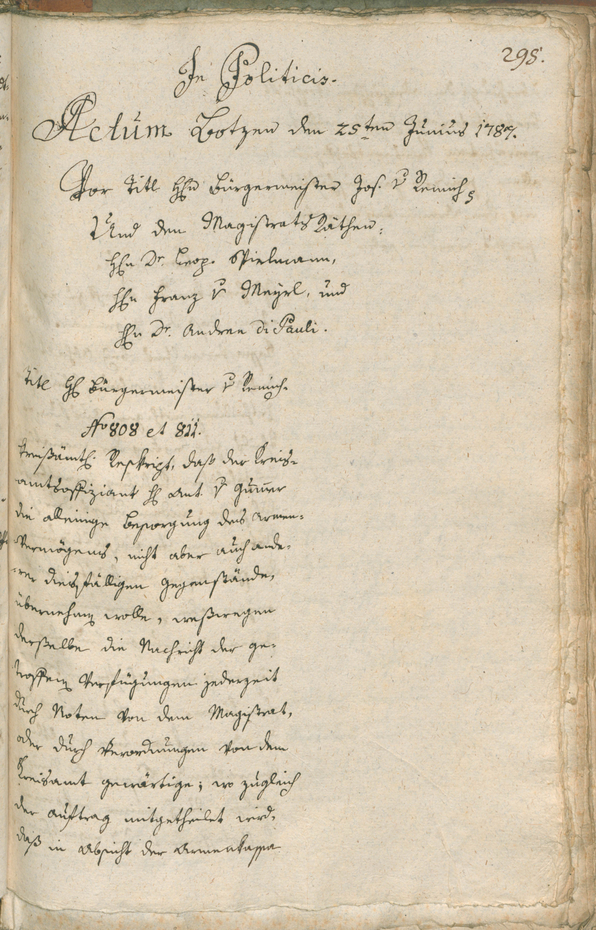 295.
In Politicis.
Actum Botzen den 25ten Junius 1787.
Vor Titl Hhn Bürgermeister Jos. v Remich,
Und den Magistrats Räthen,
Hhn Dr. Leop. Spielmann,
Hhn Franz v Mayrl, und
Hhn Dr. Andree Di Pauli.
Titl Hh Bürgermeister v Remich.
No 808 et 811.
Kreisämtl. Reskript, daß der Kreis-
amtsoffiziant Hh Ant. v Gumer
die alleinige Besorgung des Armen-
Vermögens, nicht aber auch ande-
-rer diesfälligen Gegenstände,
übernehmen wolle, weßwegen
derselbe die Nachricht der ge-
troffenen Verfügungen jederzeit
durch Noten von dem Magistrat,
oder durch Verordnungen von dem
Kreisamt gewärtige; wo zugleich
der Auftrag mitgetheilet wird,
daß in Absicht der Armenkassa